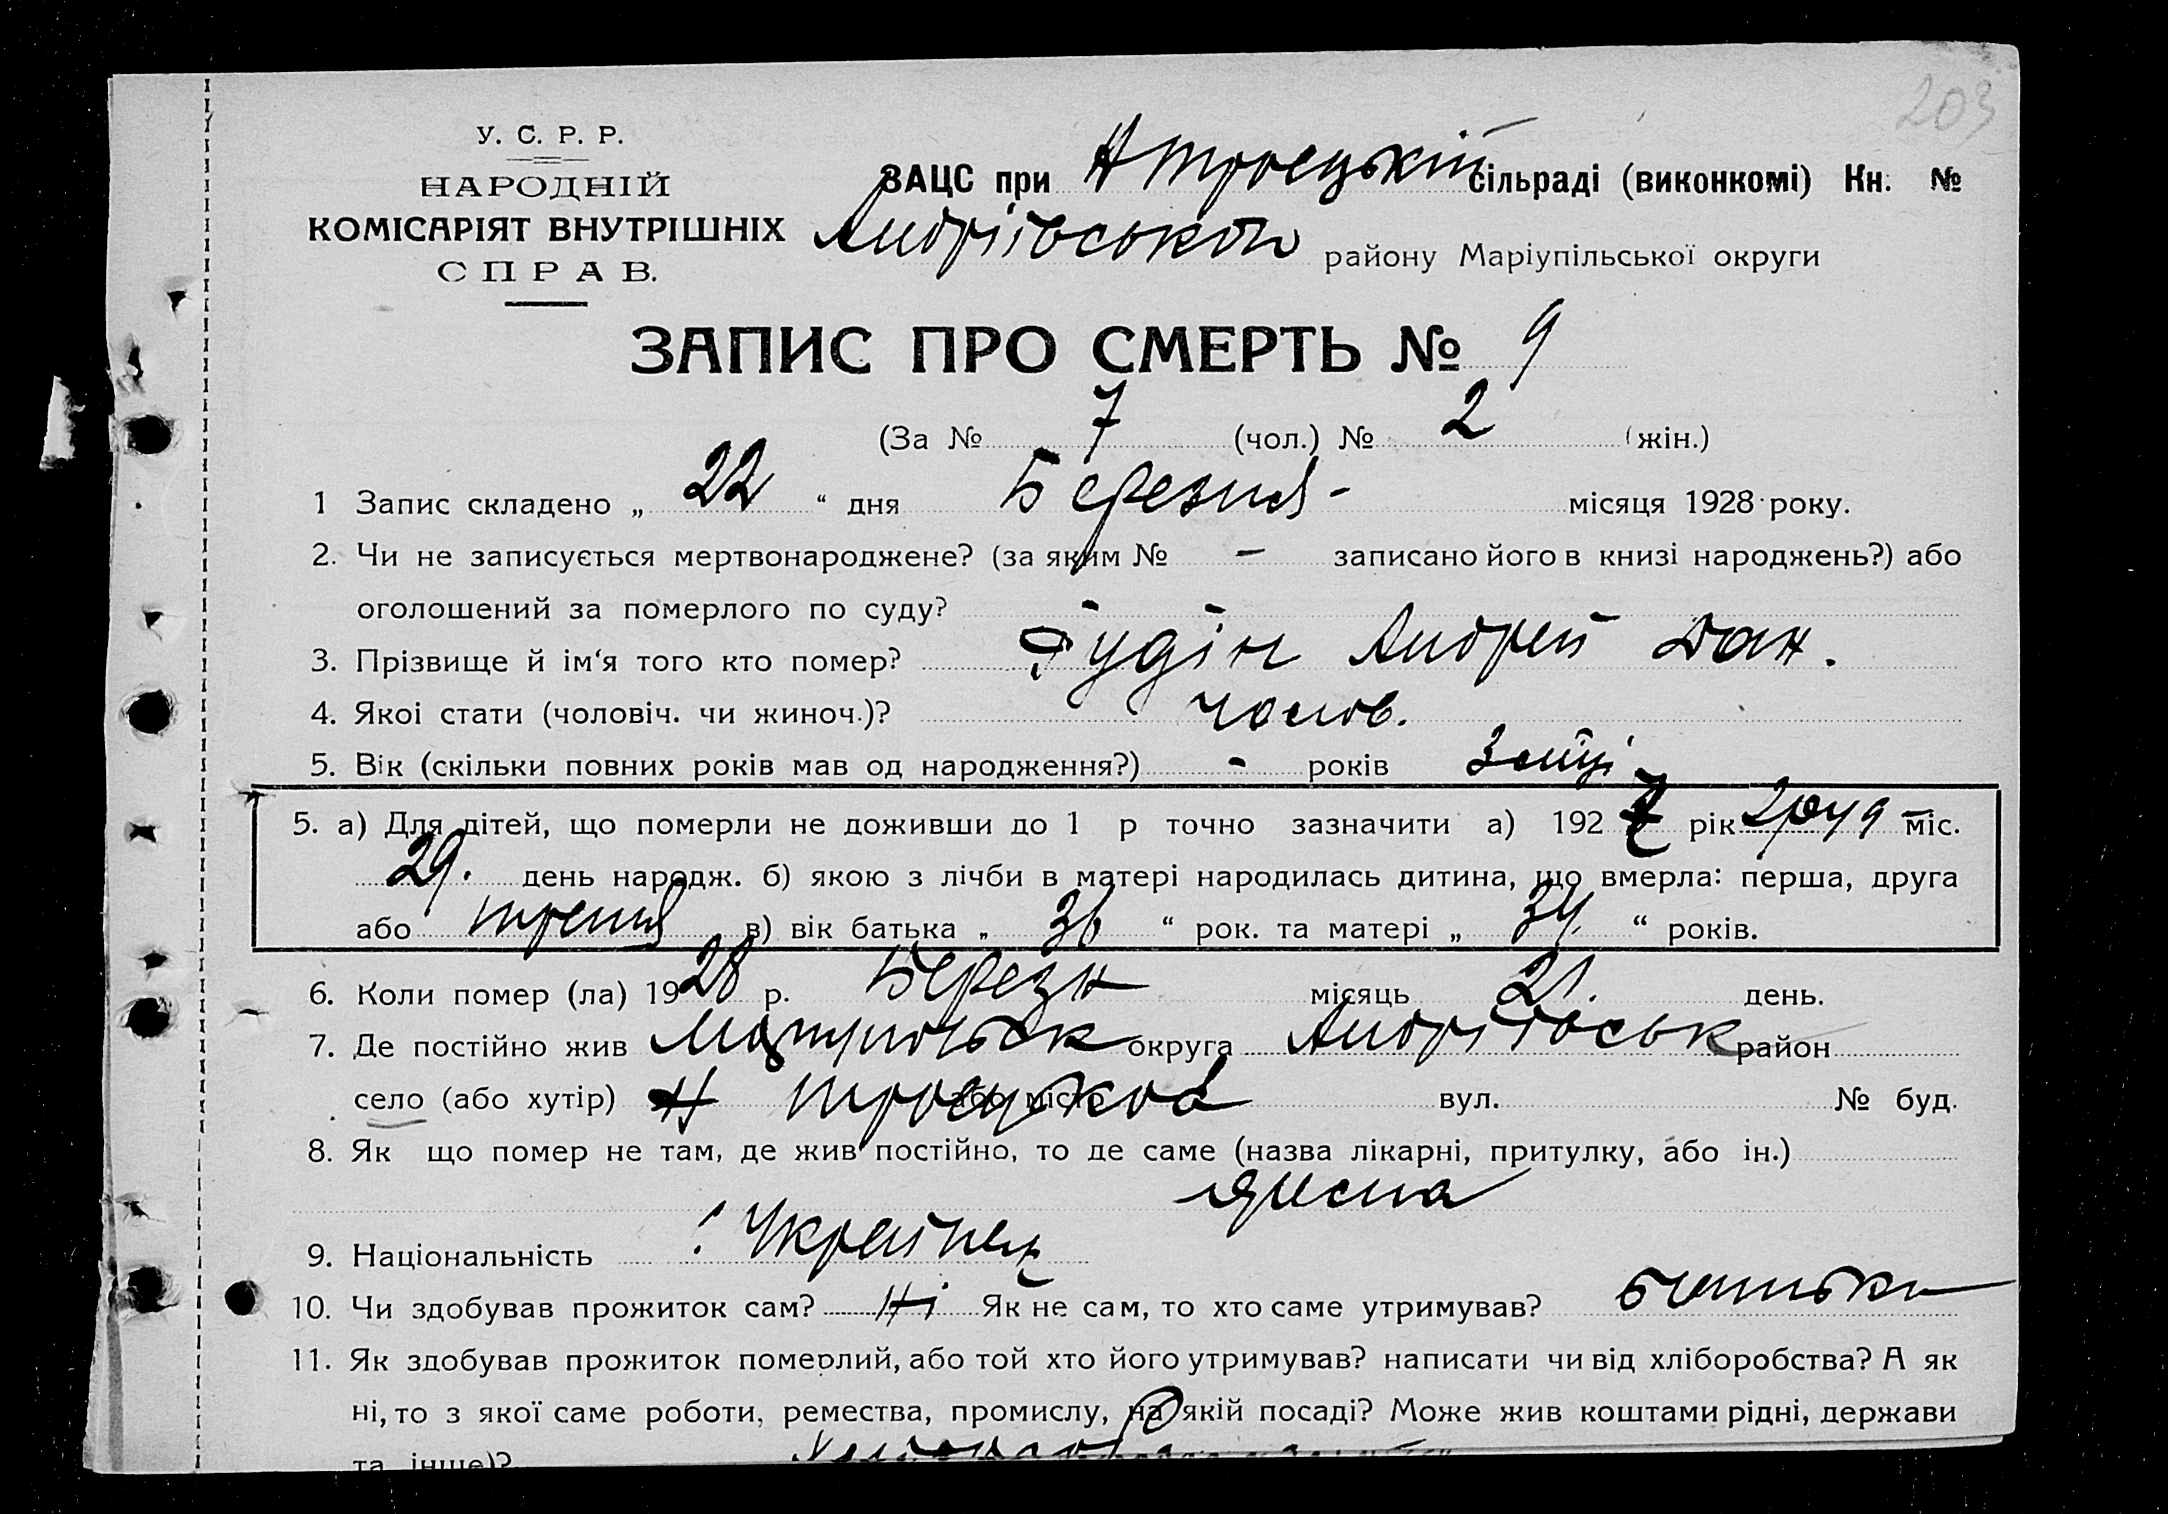 203
У. С. Р. Р.
НАРОДНІЙ
КОМІСАРІЯТ ВНУТРІШНІХ
СПРАВ.
ЗАЦС при Н Троєцькій сільраді (виконкомі) Кн. №
Андріївського району Маріупільської округи
ЗАПИС ПРО СМЕРТЬ № 9
(За № 7 (чол.) № 2 (жін.)
1 Запис складено „ 22 “ дня Березня - місяця 1928 року.
2. Чи не записується мертвонароджене? (за яким № - записано його в книзі народжень?) або
оголошений за померлого по суду? - -
3. Прізвище й ім‘я того кто помер? Андрей Дан.
4. Якоі стати (чоловіч. чи жиноч.)? чолов.
5. Вік (скільки повних років мав од народження?) - років 3 місяці
5. а) Для дітей, що померли не доживши до 1 р точно зазначити а) 1927 рік груд міс.
29. день народж. б) якою з лічби в матері народилась дитина, що вмерла: перша, друга
або третя в) вік батька „ 36 “ рок. та матері „ 34. “ років.
6. Коли помер (ла) 1928 р. Березн місяць 21. день.
7. Де постійно жив округа Андріївськ район
село (або хутір) Н Троєцьков або місто вул. № буд.
8. Як що помер не там, де жив постійно, то де саме (назва лікарні, притулку, або ін.)
9. Національність Українец
10. Чи здобував прожиток сам? Ні Як не сам, то хто саме утримував? батьки
11. Як здобував прожиток померлий, або той хто його утримував? написати чи від хліборобства? А як
ні, то з якої саме роботи, ремества, промислу, на якій посаді? Може жив коштами рідні, держави
та інше)?